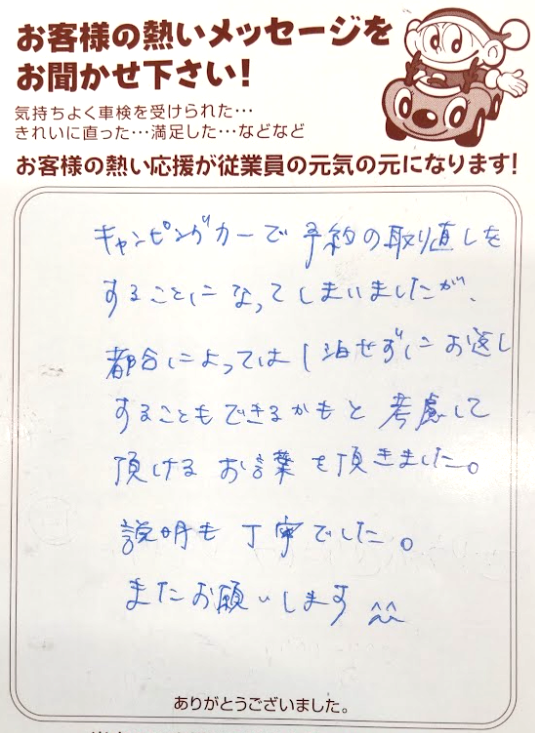 お客様の熱いメッセージを
お聞かせ下さい!
気持ちよく車検を受けられた…
きれいに直った…満足した…などなど
お客様の熱い応援が従業員の元気の元になります!
キャンピングカーで予約の取り直しを
することになってしまいましたが、
都合によっては1泊せずにお返し
することもできるかもと考慮して
頂けるお言葉を頂きました。
説明も丁寧でした。
またお願いします ^^
ありがとうございました。